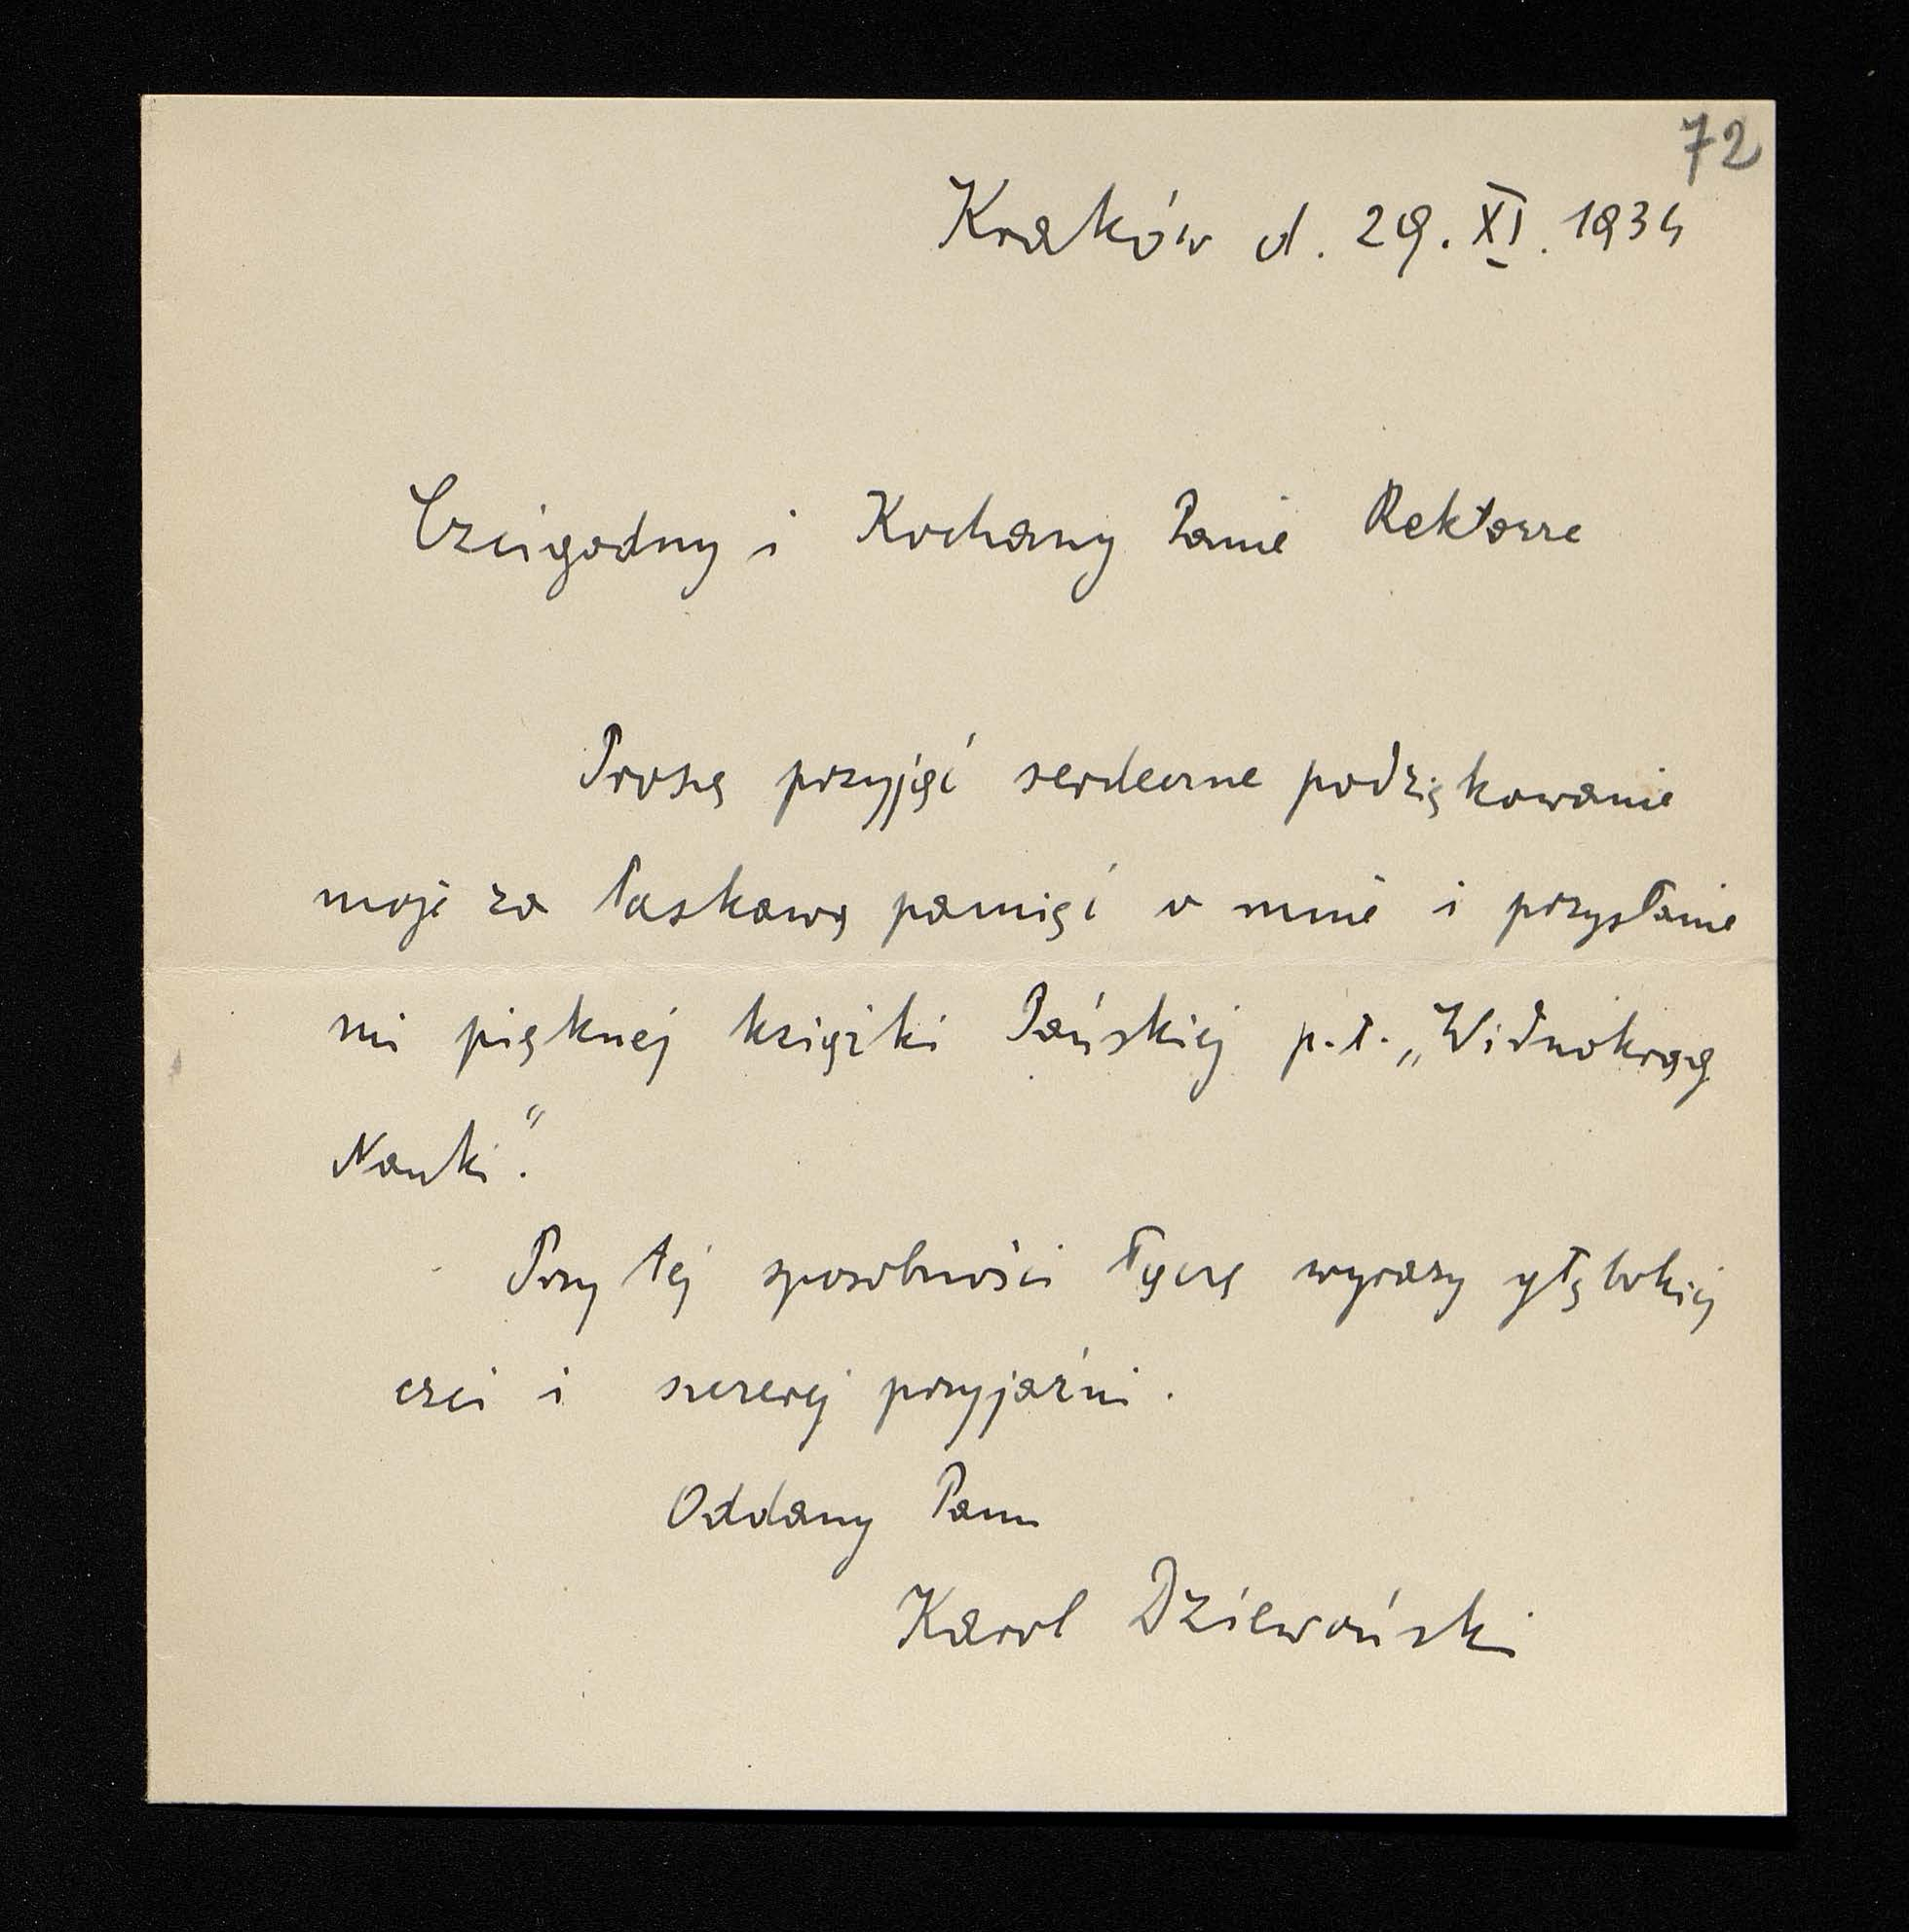 72
Kraków d. 29. XI. 1934
Czcigodny i Kochany Panie Rektorze
Proszę przyjąć serdeczne podziękowanie
moje za łaskawą pamięć o mnie i przysłanie
mi pięknej książki Pańskiej p.t. „Widnokrąg
Nauki".
Przy tej sposobności łączę wyrazy głębokiej
czci i szczerej przyjaźni.
Oddany Panu
Karol Dziewoński